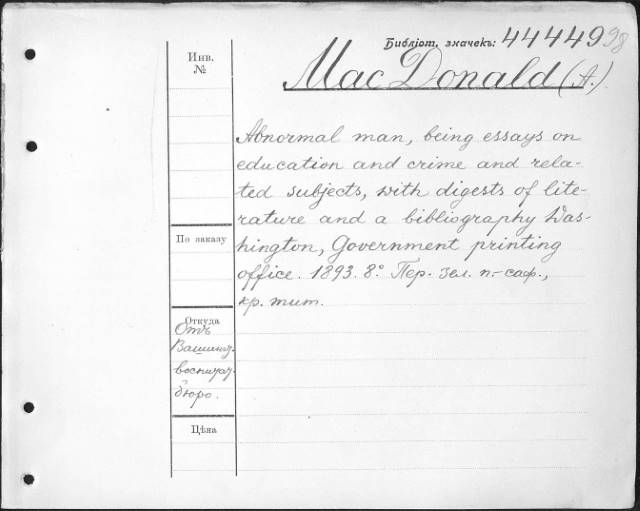 Библіот. значекъ: 44449 98
Инв.
№
Mac Donald (A.)
Abnormal man, being essays on
education and crime and rela-
ted subjects, with digests of lite-
rature and a bibliography Was-
hington, Government printing
office. 1893. 8° Пер. зел. п.-саф.,
кр. тит.
По заказу
Откуда
Отъ
Вашинг.
воспитат.
бюро.
Цѣна